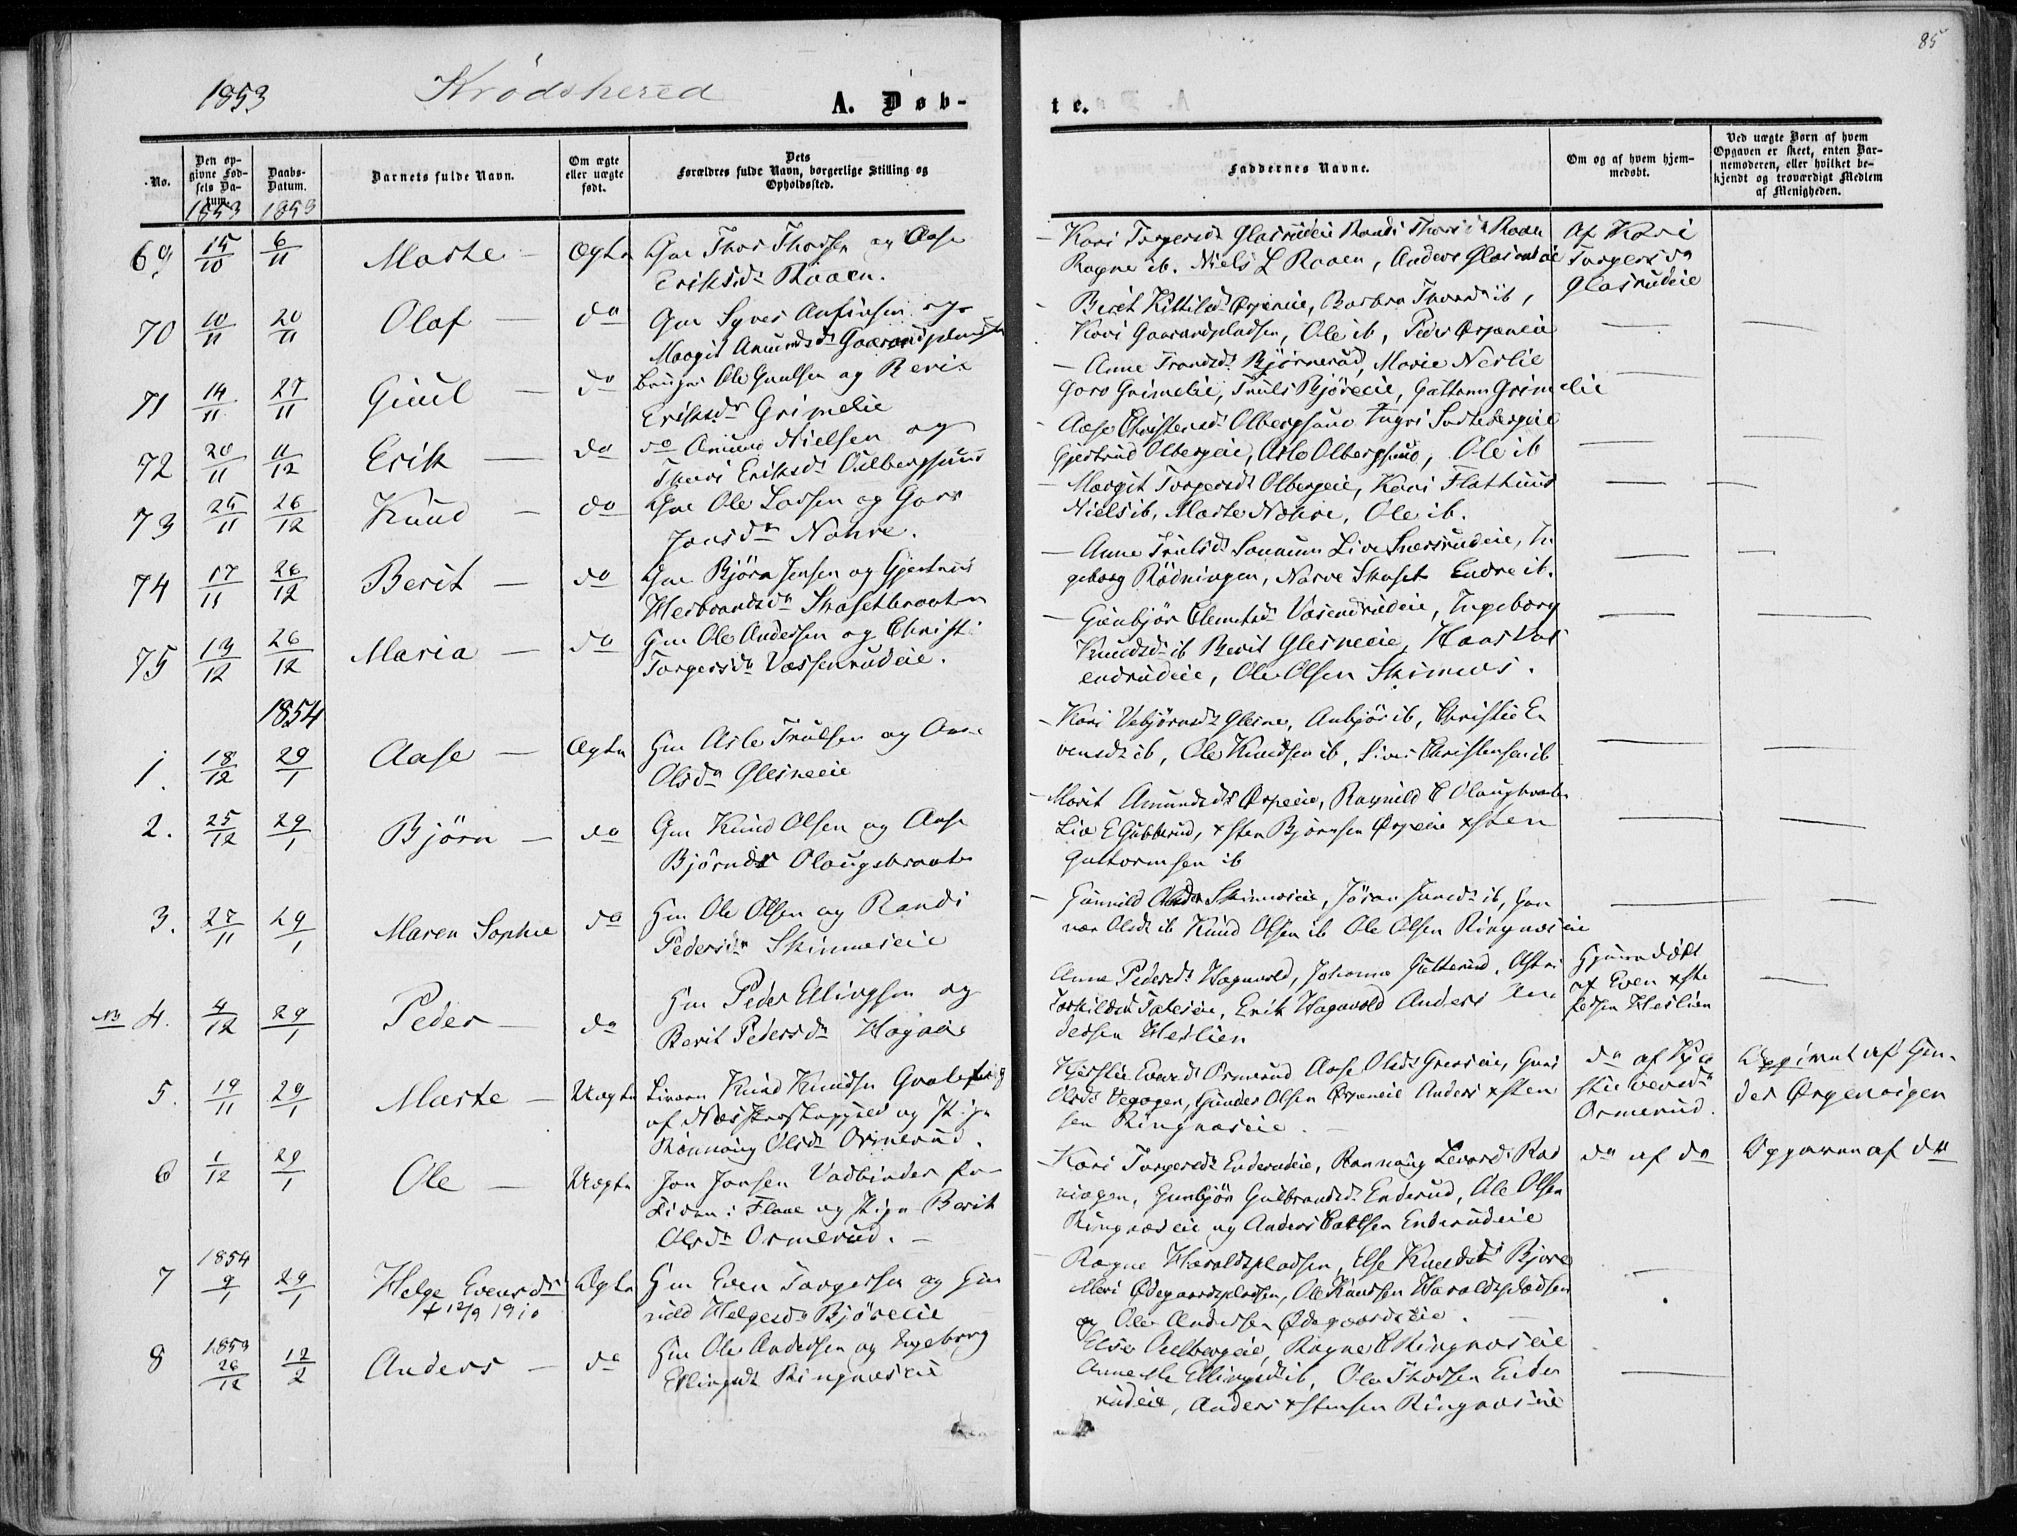 85
1853 Krødshered A. Døb-
te.
No.
Den opgivne Fødsels Datum.
1853
Daabs-Datum.
1853
Barnets fulde Navn.
Om ægte eller uægte født.
Dets Forældres fulde Navn, borgerlige Stilling og Opholdssted.
Faddernes Navne.
Om og af hvem hjemmedøbt.
Ved uægte Børn af hvem Opgaven er skeet, enten Barnemoderen, eller hvilket bekjendt og troværdigt Medlem af Menigheden.
69 15/10 6/11 Marte - Ægte Gm Thor Thorsen og Aase
Eriksdr Raaen.
- Kari Torgersdr Glasrudeie Randi Thorsdr Raaen
Ragne ib. Niels L Raaen, Anders Glasrudeie
Af Kari
Torgersdr
Glasrudeie
70 10/11 20/11 Olaf - do Gm Syver Anfinsen og
Margit Amundsdr Gaarandpladsen
- Berit Kittilsdr Ørpeneie, Barbra Thordr ib,
Kari Gaarandpladsen, Ole ib, Peder Ørpeneie
71 14/11 27/11 Guul - do Ole Guulsen og Berit
Eriksdr Grimelie
- Anne Trondsdr Bjørnerud, Marie Nerlie
Goro Grimelie, Truls Bjøreeie, Guttorm Grimelie
72 20/11 11/12 Erik - do do Amund Nielsen og
Thuri Eriksdr Oulbergsund
- Aase Christensdr Olbergsund Ingri
Gjertrud Olbergeie, Asle Olbergsund, Ole ib
73 25/11 26/12 Knud - do Gm Ole Larsen og Goro
Jonsdr Nohre.
- Margit Torgersdr Olbergeie, Kari Flathuus
Niels ib, Marte Nohre, Ole ib.
74 17/11 26/12 Berit - do Gm Bjørn Jensen og Gjertrud
Herbrandsdr Skasetbraaten
- Anne Trulsdr Sonnum Live Snersrudeie, In
geborg Rødningen, Narve Skaset Endre ib.
75 13/12 26/12 Maria - do Gm Ole Andersen og Christi
Torgersdr Vassenrudeie.
- Gunbjør Clemetsdr Vasendrudeie, Ingeborg
Knudsdr ib Berit Glesneeie, Haaver Vas
endrudeie, Ole Olsen Skimnes.
1854
1. 18/12 29/1 Aase - Ægte Gm Asle Trulsen og Anne
Olsdr Glesneeie
- Kari Vebjørnsdr Glesne, Anbjør ib, Christie E
vensdr ib, Ole Knudsen ib, Siver Christensen ib
2. 25/12 29/1 Bjørn - do Gm Knud Olsen og Aase
Bjørnsdr Olaugsbraaten
- Marit Amundsdr Ørpeeie, Ragnild E Olaugbraaten
Live E Gubberud, xsten Bjørnsen Ørpeeie xsten
Guttormsen ib
3. 27/11 29/1 Maren Sophie do Gm Ole Olsen og Randi
Pedersdr Skimneseie
- Gunnild Olsdr Skimneseie, Jøran Jonsdr ib, Gun
nor Olsdr ib Knud Olsen ib Ole Olsen Ringneseie
NB 4. 4/12 29/1 Peder - do Gm Peder Ellingsen og
Berit Pedersdr Hagaeie
Anne Pedersdr Hagavold, Johanne Gulterud, Astri
Torkildsdr, Erik Hagavold Anders An
dersen Heilien
Hjemmedøbt
af Even xste
fersen Heilien
5. 19/11 29/1 Marte - Uægte Knud Knudsen
af Næs Præstegjeld og Pige
Rønnaug Olsdr Ormerud.
Kjerstie Evensdr Ormerud Aase Olsdr, Guri
Olsdr, Gunder Olsen Ørpeneie Anders xsten
sen Ringneseie.
do af Kjer
stie Evensdr
Ormerud.
Opgivet af Gun-
der Ørgenvigen
6 1/12 29/1 Ole - Uægte Jon Jonsen Vadbinder Op-
siden i Flaae og Pige Berit
Olsdr Ormerud. -
- Kari Torgersdr Enderudeie, Rønnaug Iversdr
, Gunbjør Gulbrandsdr Enderud, Ole Olsen
Ringneseie og Anders Carlsen Enderudeie
do af do
Opgaven af do
7 1854 9/1 29/1 Helge Evensdr Ægte Gm Even Torgersen og Gun
† 12/9 1910
nild Helgesdr Bjøreeie
- Ragne Haraldspladsen, Else Knudsdr Bjøre
Mari Ødegaardspladsen, Ole Knudsen Haraldspladsen
og Ole Andersen Ødegaardseie.
8 1853 26/12 12/2 Anders - do Gm Ole Andersen og Ingeborg
Ellingsdr Ringneseie
Else Oulbergeie, Ragne E Ringneseie
Anne Ellingsdr ib, Ole Thorsen Ende
rudeie, Anders xstensen Ringneseie